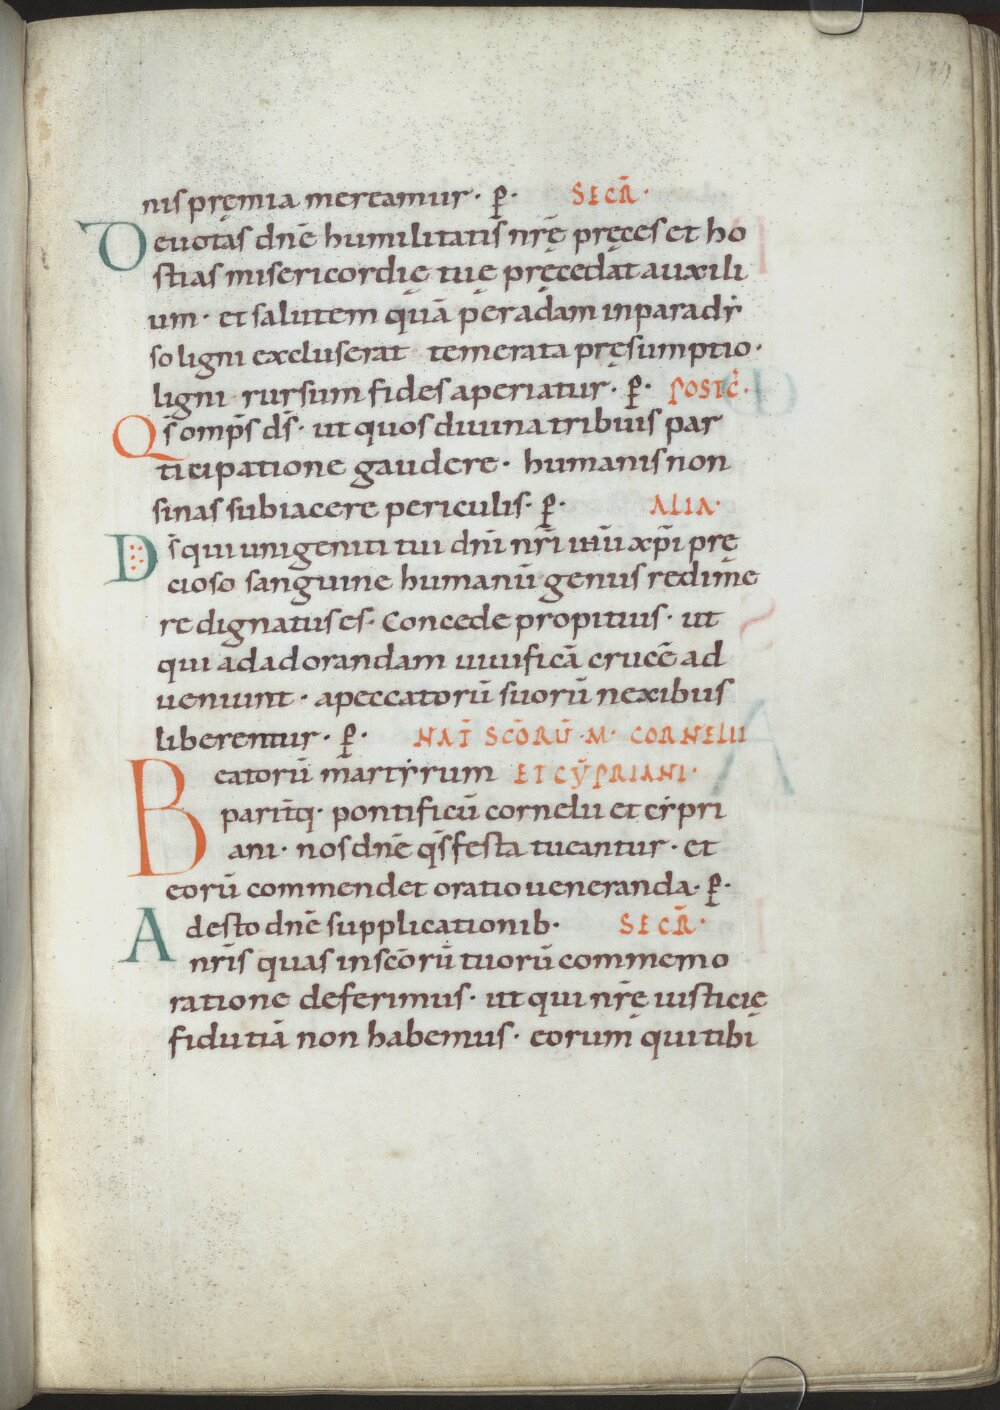 nis pręmia mereamur · p̱ · SECR̄ ·
Deuotas dn̄e humilitatis nr̄ę pręces et ho
stias misericordię tuę pręcedat auxili
um · et salutem quā per adam in paradẏ
so ligni excluserat temerata pręsumptio ·
ligni rursum fides aperiatur · p̱ · POSTC̄ ·
Qs̄ omp̄s ds̄ · ut quos diuina tribuis par
ticipatione gaudere · humanis non
sinas subiacere periculis · p̱ · ALIA ·
Ds̄ qui unigeniti tui dn̄i nr̄i ihū xp̄i prę
cioso sanguine humanū genus redime
re dignatus es · Concede propitius · ut
qui ad adorandam uiuificā crucē ad
ueniunt · a peccatorū suorū nexibus
liberentur · p̱ · NAT̄ SCŌRŪ · M · CORNELII
Beatorū martẏrum ET CẎPRIANI ·
parit̄q · pontificū cornelii et cẏpri
ani · nos dn̄e qs̄ festa tueantur · et
eorū commendet oratio ueneranda · p̱ ·
Adesto dn̄e supplicationib · SECR̄ ·
nr̄is quas in scōrū tuorū commemo
ratione deferimus · ut qui nr̄ę iusticię
fidutiā non habemus · eorum qui tibi